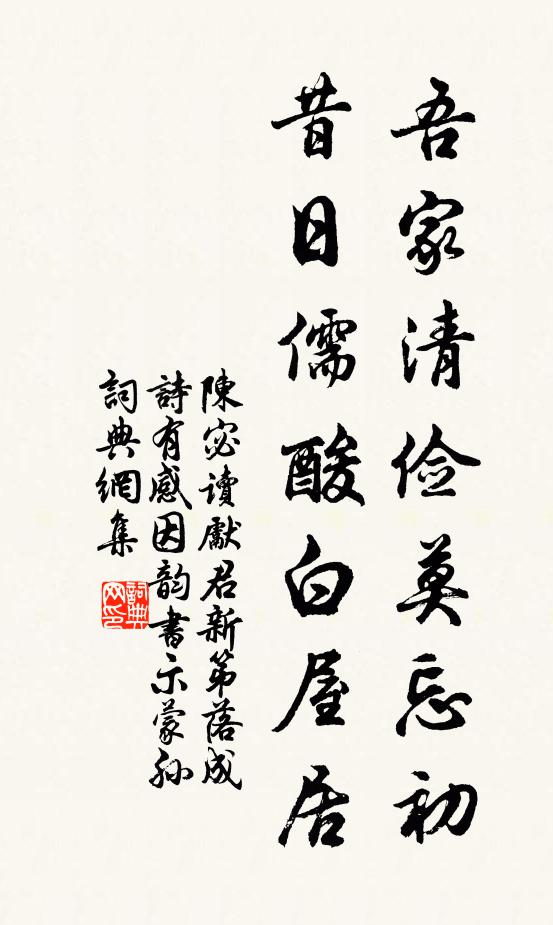 吾家清儉莫忘初
昔日儒酸白屋居
陳宓讀獻君新第落成
詩有感因韵書示蒙孙
詞典網集
詞典网印